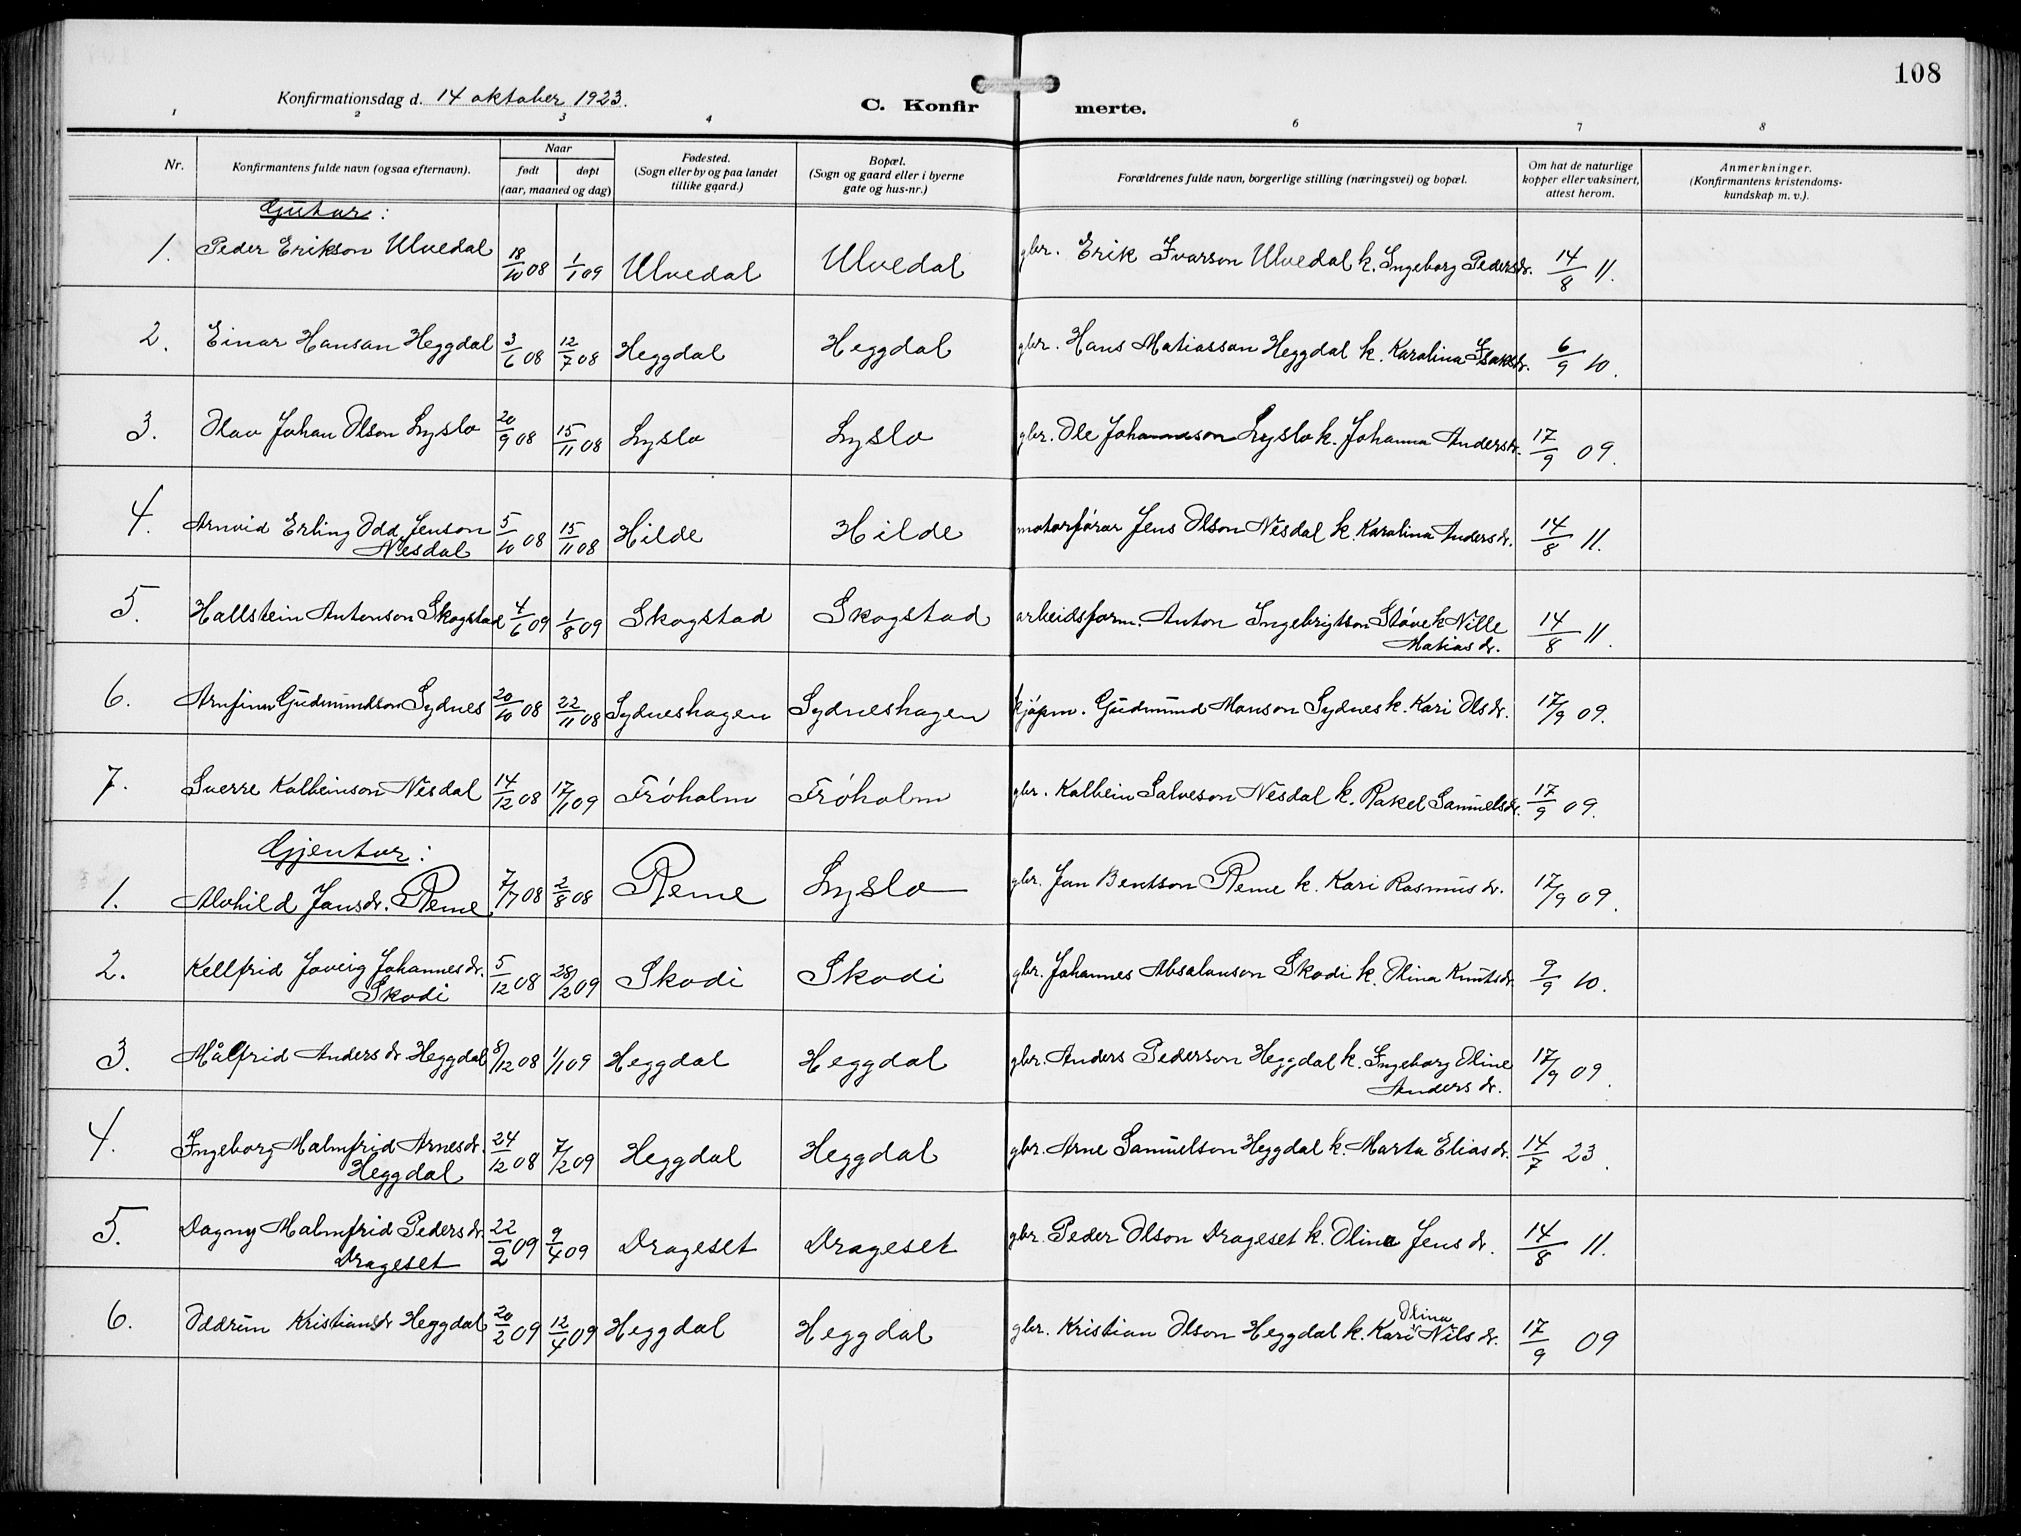 108
Konfirmationsdag d. 14 oktober 1923.
C. Konfir merte.
1 2 3 4 6 7 8
Nr. Konfirmantens fulde navn (ogsaa efternavn). Naar født døpt (aar, maaned og dag) Fødested. (Sogn eller by og paa landet tillike gaard.) Bopæl. (Sogn og gaard eller i byerne gate og hus-nr.) Forældrenes fulde navn, borgerlige stilling (næringsvei) og bopæl. Om hat de naturlige kopper eller vaksinert, attest herom. Anmerkninger. (Konfirmantens kristendoms-kundskap m. v.).
Gutar:
1. Peder Erikson Ulvedal 18/10 08 1/1 09 Ulvedal Ulvedal gbr. Erik Ivarson Ulvedal k. Ingeborg Pedersdr. 14/8 11.
2. Einar Hanson Heggdal 3/6 08 12/7 08 Heggdal Heggdal gbr. Hans Matiasson Heggdal k. Karolina Isaksdr. 6/9 10.
3. Olav Johan Olson Lyslo 20/9 08 15/11 08 Lyslo Lyslo gbr. Ole Johannesson Lyslo k. Johanna Andersdr. 17/9 09.
4. Arnvid Erling Odd Jenson Nesdal 5/10 08 15/11 08 Hilde Hilde motorførar Jens Olson Nesdal k. Karolina Andersdr. 14/8 11.
5. Hallstein Antonson Skogstad 4/6 09 1/8 09 Skogstad Skogstad arbeidsform. Anton Ingebrigtson Støve k Nille Matiasdr. 14/8 11.
6. Arnfinn Gudmundson Sydnes 20/10 08 22/11 08 Sydneshagen Sydneshagen kjøpm. Gudmund Monson Sydnes k. Kari Olsdr. 17/9 09.
7. Sverre Kolbeinson Nesdal 14/12 08 17/1 09 Frøholm Frøholm gbr. Kolbein Salveson Nesdal k. Rakel Samuelsdr. 17/9 09.
Gjentur:
1. Alvhild Jonsdr. Reme 7/7 08 2/8 08 Reme Lyslo gbr. Jon Bentson Reme k. Kari Rasmusdr. 17/9 09.
2. Kellfrid Joveig Johannesdr. Skodi 5/12 08 28/2 09 Skodi Skodi gbr. Johannes Absalonson Skodi k. Olina Knutsdr. 9/9 10.
3. Målfrid Andersdr Heggdal 8/12 08 1/1 09 Heggdal Heggdal gbr. Anders Pederson Heggdal k. Ingeborg Oline Andersdr. 17/9 09.
4. Ingeborg Malmfrid Arnesdr. Heggdal 24/12 08 7/2 09 Heggdal Heggdal gbr. Arne Samuelson Heggdal k. Marta Eliasdr. 14/7 23.
5. Dagny Malmfrid Pedersdr. Drageset 22/2 09 9/4 09 Drageset Drageset gbr. Peder Olson Drageset k. Olina Jensdr. 14/8 11.
6. Oddrun Kristiansdr Heggdal 20/2 09 12/4 09 Heggdal Heggdal gbr. Kristian Olson Heggdal k. Kari Olina Nilsdr. 17/9 09